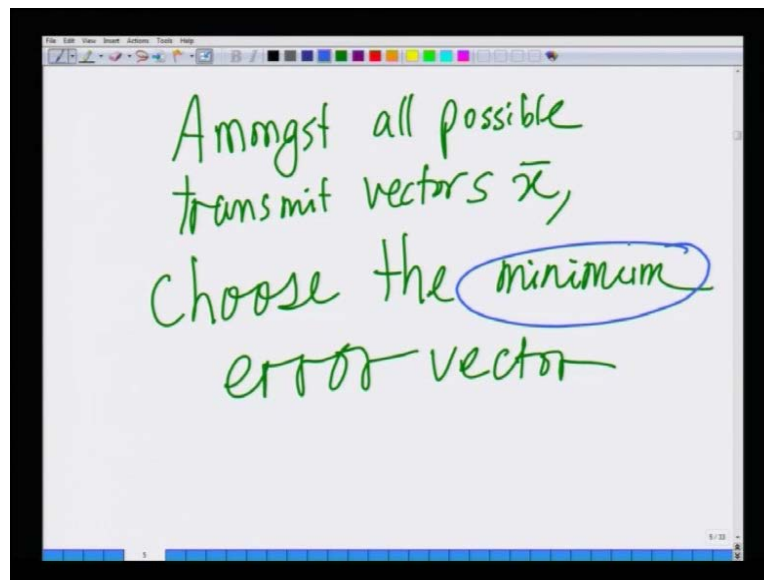 File Edit View Insert Actions Tools Help
B I
Amongst all possible
transmit vectors x̄,
choose the minimum
error vector
5
5/33